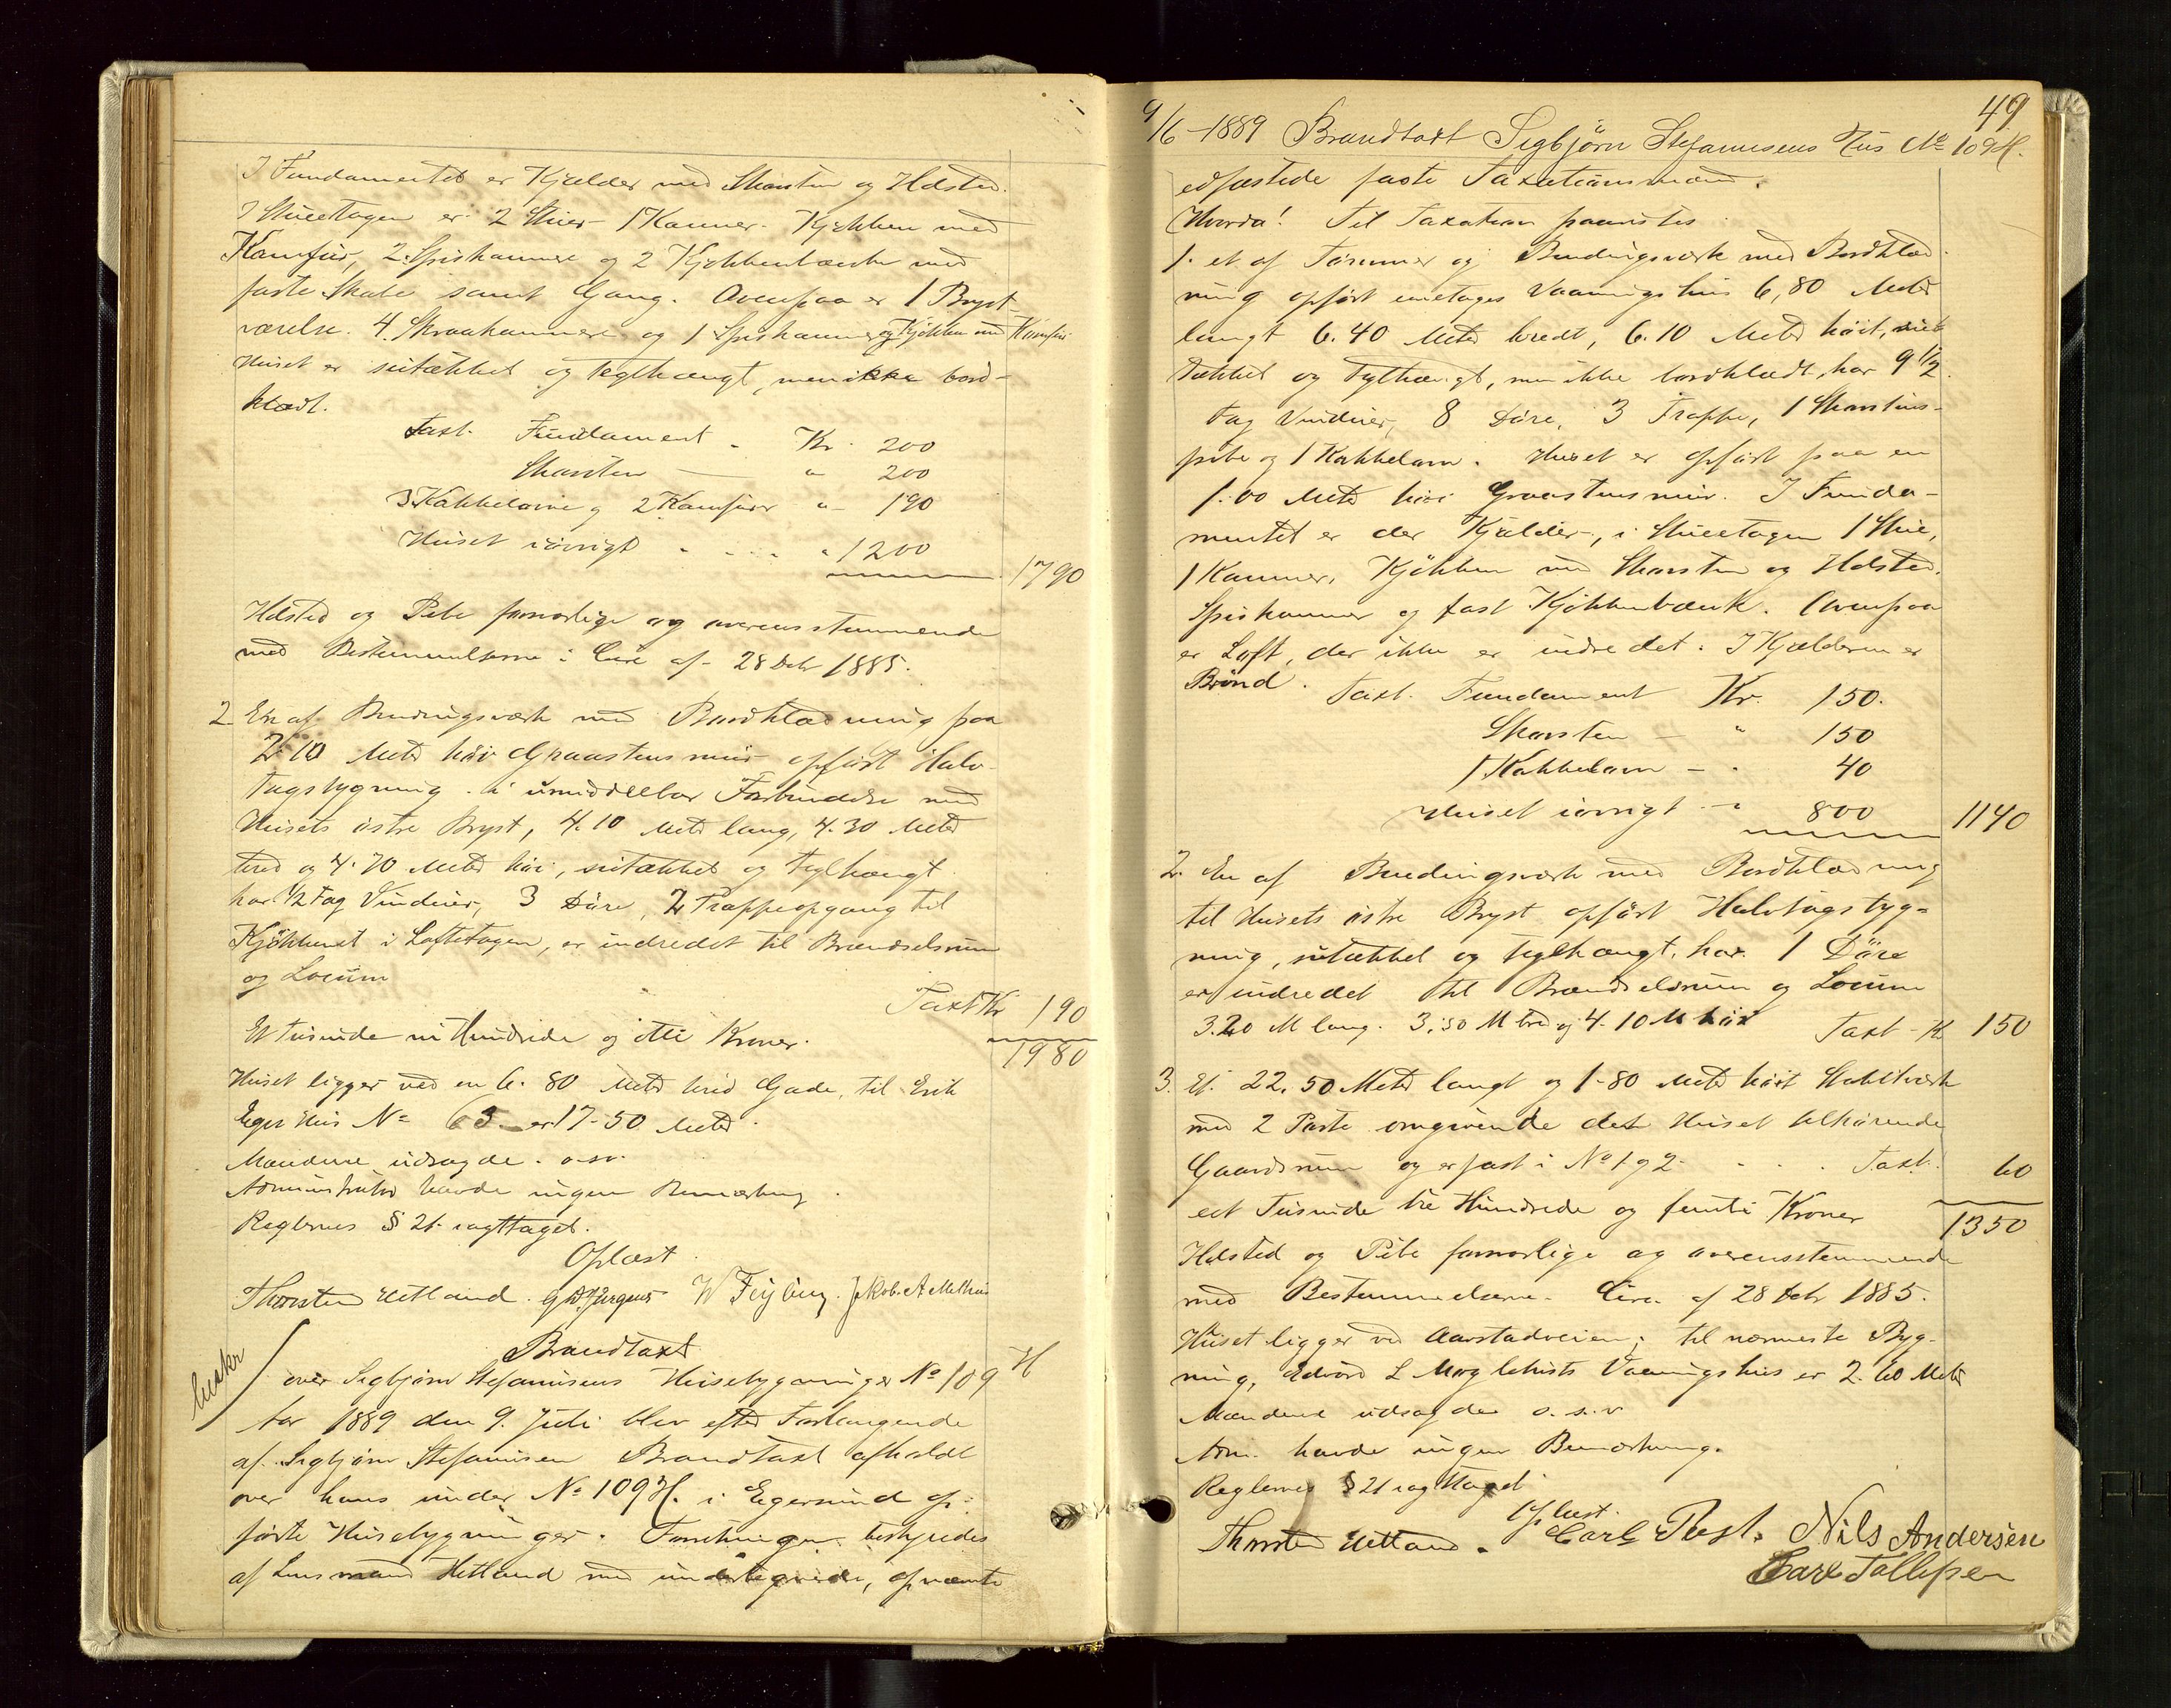 I Fundamentet er Kjælder med Skorsten og Ildsted.
I Stueetagen er 2 Stuer 1 Kammer. Kjøkken med
Komfur, 2 Spiskammere og 2 Kjøkkenbænke med
faste Skabe samt Gang. Ovenpaa er 1 Bryst-
værelse. 4 Skraakammere og 1 Spiskammer og Kjøkken med Komfur
Huset er sutækket og teglhængt, men ikke bord-
klædt.
Taxt. Fundament - Kr. 200
Skorsten — " 200
3 Kakkelovne og 2 Komfurer " 190
Huset iøvrigt - - - - " 1200
1790
Ildsted og Pibe forsvarlige og overensstemmende
med Bestemmelserne i Circ af 28 Debr 1885.
2 En af Bindingsværk med Bordklædning paa
2.10 Meter høi Graastensmur opført Halv-
tagsbygning i umiddelbar Forbindelse med
Husets østre Bryst, 4.10 Meter lang, 4.30 Meter
bred og 4.70 Meter høi, sutækket og teglhængt
har 1/2 Fag Vinduer, 3 Døre, 2 Trappeopgang til
Kjøkkenet i Loftetagen, er indredet til Brændselsrum
og Locum
Taxt Kr 190
Et tusinde ni Hundrede og otti Kroner.
1980
Huset ligger ved en 6.80 Meter bred Gade, til Erik
Eges Hus No 63 er 17.50 Meter.
Mændene udsagde o.s.v.
Administrator havde ingen Bemærkning.
Reglernes § 21 iagttaget.
Oplæst
Thorsten Hetland. G D Jürgens W Feyling. Jakob A Mellhus
Brandtaxt
over Sigbjørn Stefanusens Husebygninger No 109 H
Aar 1889 den 9. Juli blev efter Forlangende
af Sigbjørn Stefanusen Brandtaxt afholdt
over hans under No 109 H. i Egersund op-
førte Husebygninger. Forretningen bestyredes
af Lensmand Hetland med undertegnede, opnævnte
49
9/6 - 1889 Brandtaxt Sigbjørn Stefanusens Hus No 109 H.
edfæstede faste Taxationsmænd.
Hvorda! Til Taxation paavistes
1. et af Tømmer og Bindingsværk med Bordklæd-
ning opført enetages Vaaningshus 6,80 Meter
langt 6.40 Meter bredt, 6.10 Meter høit, sut
tækket og teglhængt, men ikke bordklædt, har 9 1/2
Fag Vinduer, 8 Døre, 3 Trappe, 1 Skorstens-
pibe og 1 Kakkelovn. Huset er opført paa en
1.00 Meter høi Graastensmur. I Funda-
mentet er der Kjælder, i Stueetagen 1 Stue,
1 Kammer, Kjøkken med Skorsten og Ildsted,
Spiskammer og fast Kjøkkenbænk. Ovenpaa
er Loft, der ikke er indredet. I Kjælderen er
Brønd.
Taxt. Fundament Kr. 150.
Skorsten — " 150
1 Kakkelovn - " 40
Huset iøvrigt - " 800
1140
2. En af Bindingsværk med Bordklædning
til Husets østre Bryst opført Halvtagsbyg-
ning, sutækket og teglhængt, har 1 Døre
er indredet til Brændselsrum og Locum
3.20 M lang. 3.50 M bred og 4.10 M høi Taxt - K 150
3. Et 22.50 Meter langt og 1.80 Meter høit Stakitværk
med 2 Porte omgivende det Huset tilhørende
Gaardsrum og er fast i No 1 og 2 - . . . Taxt. 60
eet Tusinde tre Hundrede og femti Kroner
1350
Ildsted og Pibe forsvarlige og overensstemmende
med Bestemmelserne. Circ. af 28 Debr 1885.
Huset ligger ved Aarstadveien; til nærmeste Byg-
ning, Edvard L Vaaningshus er 2.60 Meter
Mændene udsagde o.s.v
Adm. havde ingen Bemærkning.
Reglernes § 21 iagttaget
Oplæst.
Thorsten Hetland. Carl Post. Nils Andersen
Carl Tollefsen